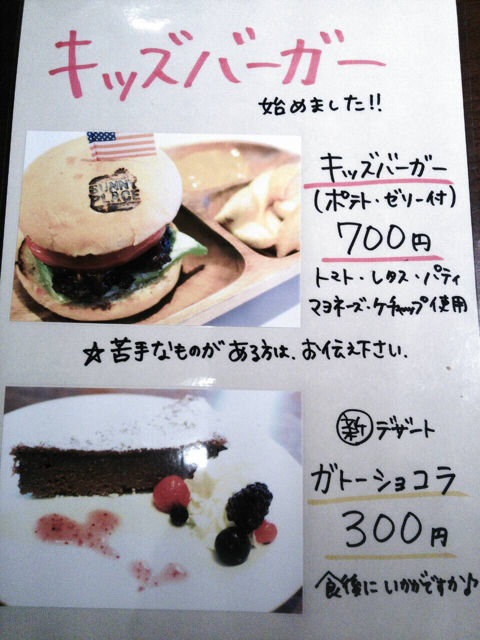 キッズバーガー
始めました!!
SUNNY
PLACE
キッズバーガー
(ポテト・ゼリー付)
700円
トマト・レタス・パティ
マヨネーズ・ケチャップ使用
☆苦手なものがある方は、お伝え下さい.
新デザート
ガトーショコラ
300円
食後にいかがですか♪